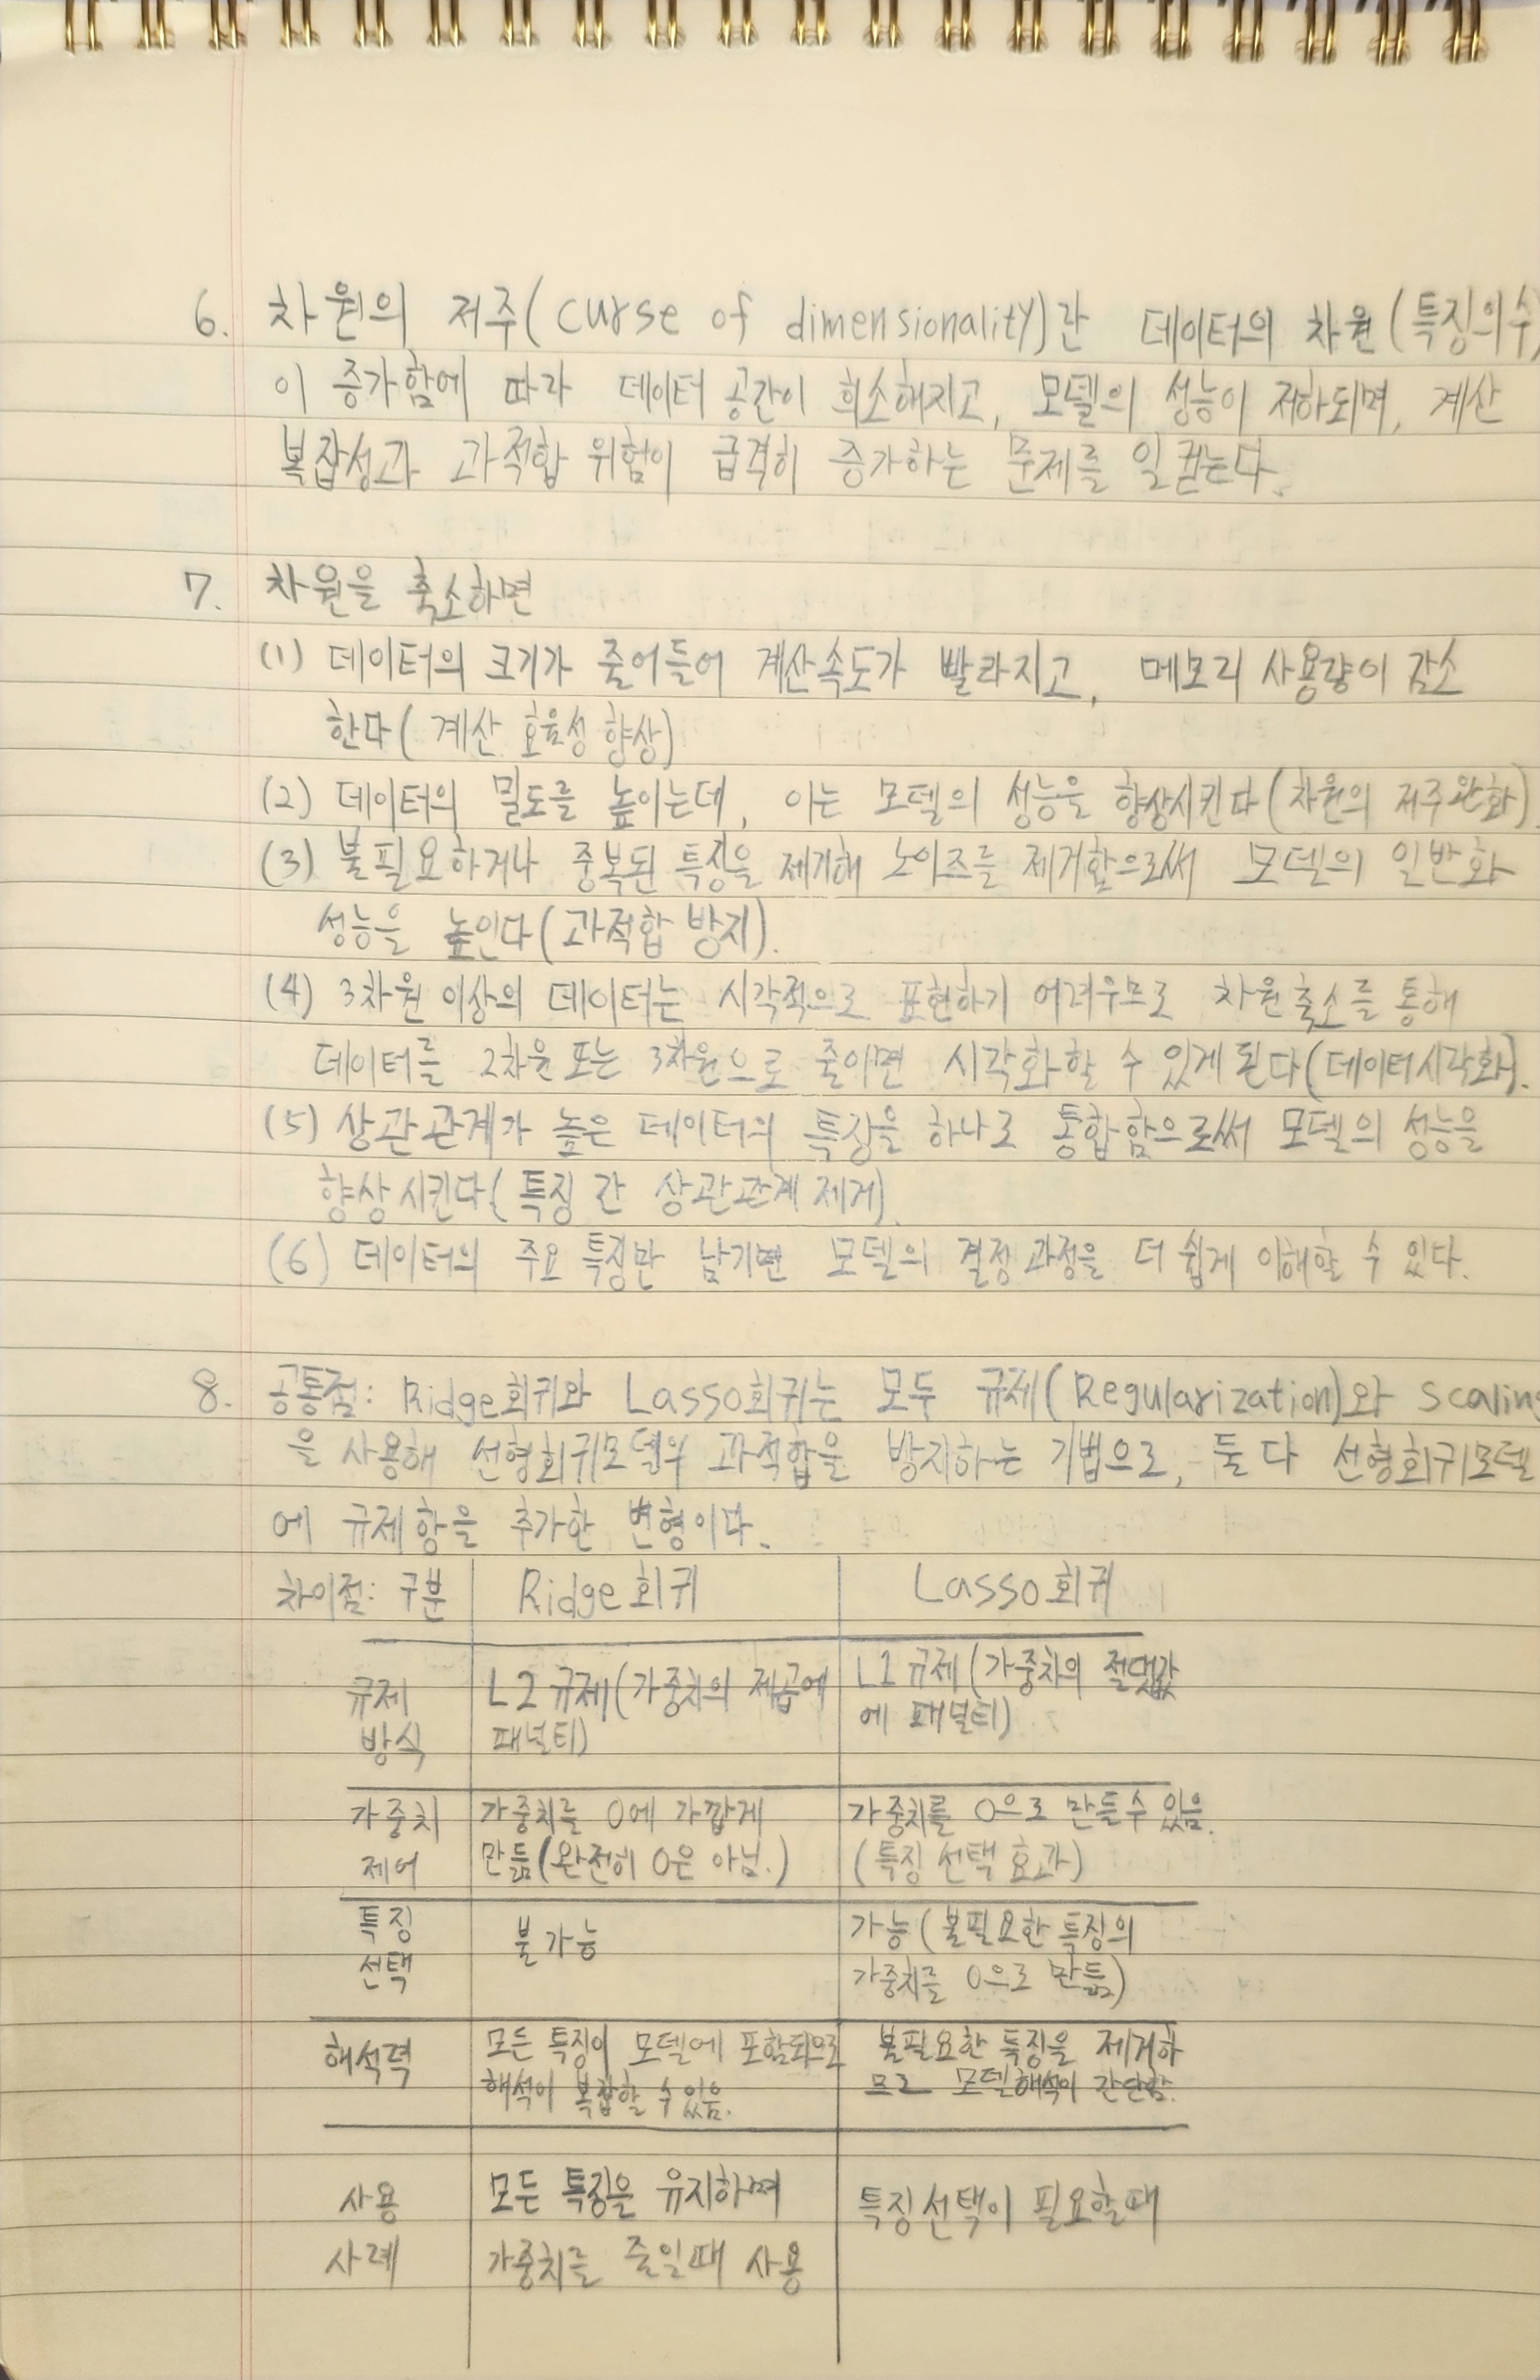 6. 차원의 저주(curse of dimensionality)란 데이터의 차원(특징의수)
이 증가함에 따라 데이터 공간이 희소해지고, 모델의 성능이 저하되며, 계산
복잡성과 과적합 위험이 급격히 증가하는 문제를 일컫는다.
7. 차원을 축소하면
(1) 데이터의 크기가 줄어들어 계산속도가 빨라지고, 메모리 사용량이 감소
한다(계산 효율성 향상)
(2) 데이터의 밀도를 높이는데, 이는 모델의 성능을 향상시킨다(차원의 저주완화).
(3) 불필요하거나 중복된 특징을 제거해 노이즈를 제거함으로써 모델의 일반화
성능을 높인다(과적합 방지).
(4) 3차원 이상의 데이터는 시각적으로 표현하기 어려우므로 차원축소를 통해
데이터를 2차원 또는 3차원으로 줄이면 시각화할 수 있게 된다(데이터시각화).
(5) 상관관계가 높은 데이터의 특징을 하나로 통합함으로써 모델의 성능을
향상시킨다(특징 간 상관관계 제거).
(6) 데이터의 주요 특징만 남기면 모델의 결정 과정을 더 쉽게 이해할 수 있다.
8. 공통점: Ridge회귀와 Lasso회귀는 모두 규제(Regularization)와 scaling
을 사용해 선형회귀모델의 과적합을 방지하는 기법으로, 둘 다 선형회귀모델
에 규제항을 추가한 변형이다.
차이점: 구분 Ridge회귀 Lasso회귀
규제 L2 규제(가중치의 제곱에 L1 규제(가중치의 절댓값
방식 패널티) 에 패널티)
가중치 가중치를 0에 가깝게 가중치를 0으로 만들수 있음.
제어 만듦(완전히 0은 아님.) (특징 선택 효과)
특징 불가능 가능(불필요한 특징의
선택 가중치를 0으로 만듦)
해석력 모든 특징이 모델에 포함되므로 불필요한 특징을 제거하
해석이 복잡할 수 있음. 므로 모델해석이 간단함.
사용 모든 특징을 유지하며 특징선택이 필요할때
사례 가중치를 줄일때 사용